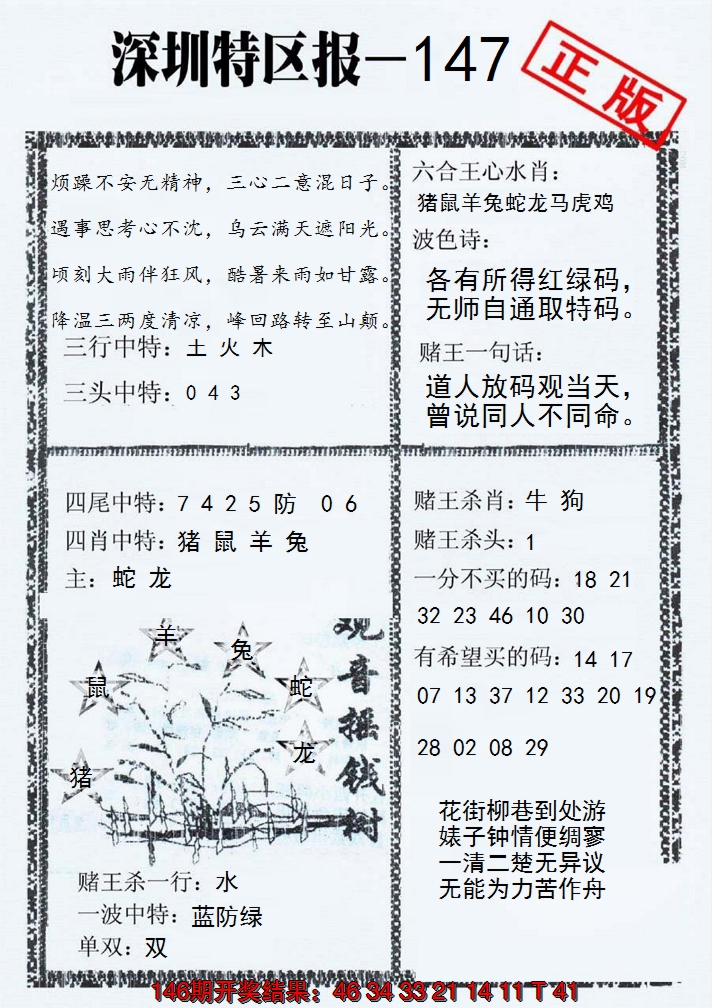 深圳特区报—147
正版
烦躁不安无精神，三心二意混日子。
遇事思考心不沈，乌云满天遮阳光。
顷刻大雨伴狂风，酷暑来雨如甘露。
降温三两度清凉，峰回路转至山颠。
三行中特：土 火 木
三头中特：0 4 3
六合王心水肖：
猪鼠羊兔蛇龙马虎鸡
波色诗：
各有所得红绿码，
无师自通取特码。
赌王一句话：
道人放码观当天，
曾说同人不同命。
四尾中特：7 4 2 5 防 0 6
四肖中特：猪 鼠 羊 兔
主：蛇 龙
羊
兔
鼠
蛇
龙
猪
观音摇钱树
赌王杀一行：水
一波中特：蓝防绿
单双：双
赌王杀肖：牛 狗
赌王杀头：1
一分不买的码：18 21
32 23 46 10 30
有希望买的码：14 17
07 13 37 12 33 20 19
28 02 08 29
花街柳巷到处游
婊子钟情便绸寥
一清二楚无异议
无能为力苦作舟
146期开奖结果：46 34 33 21 14 11 T 41